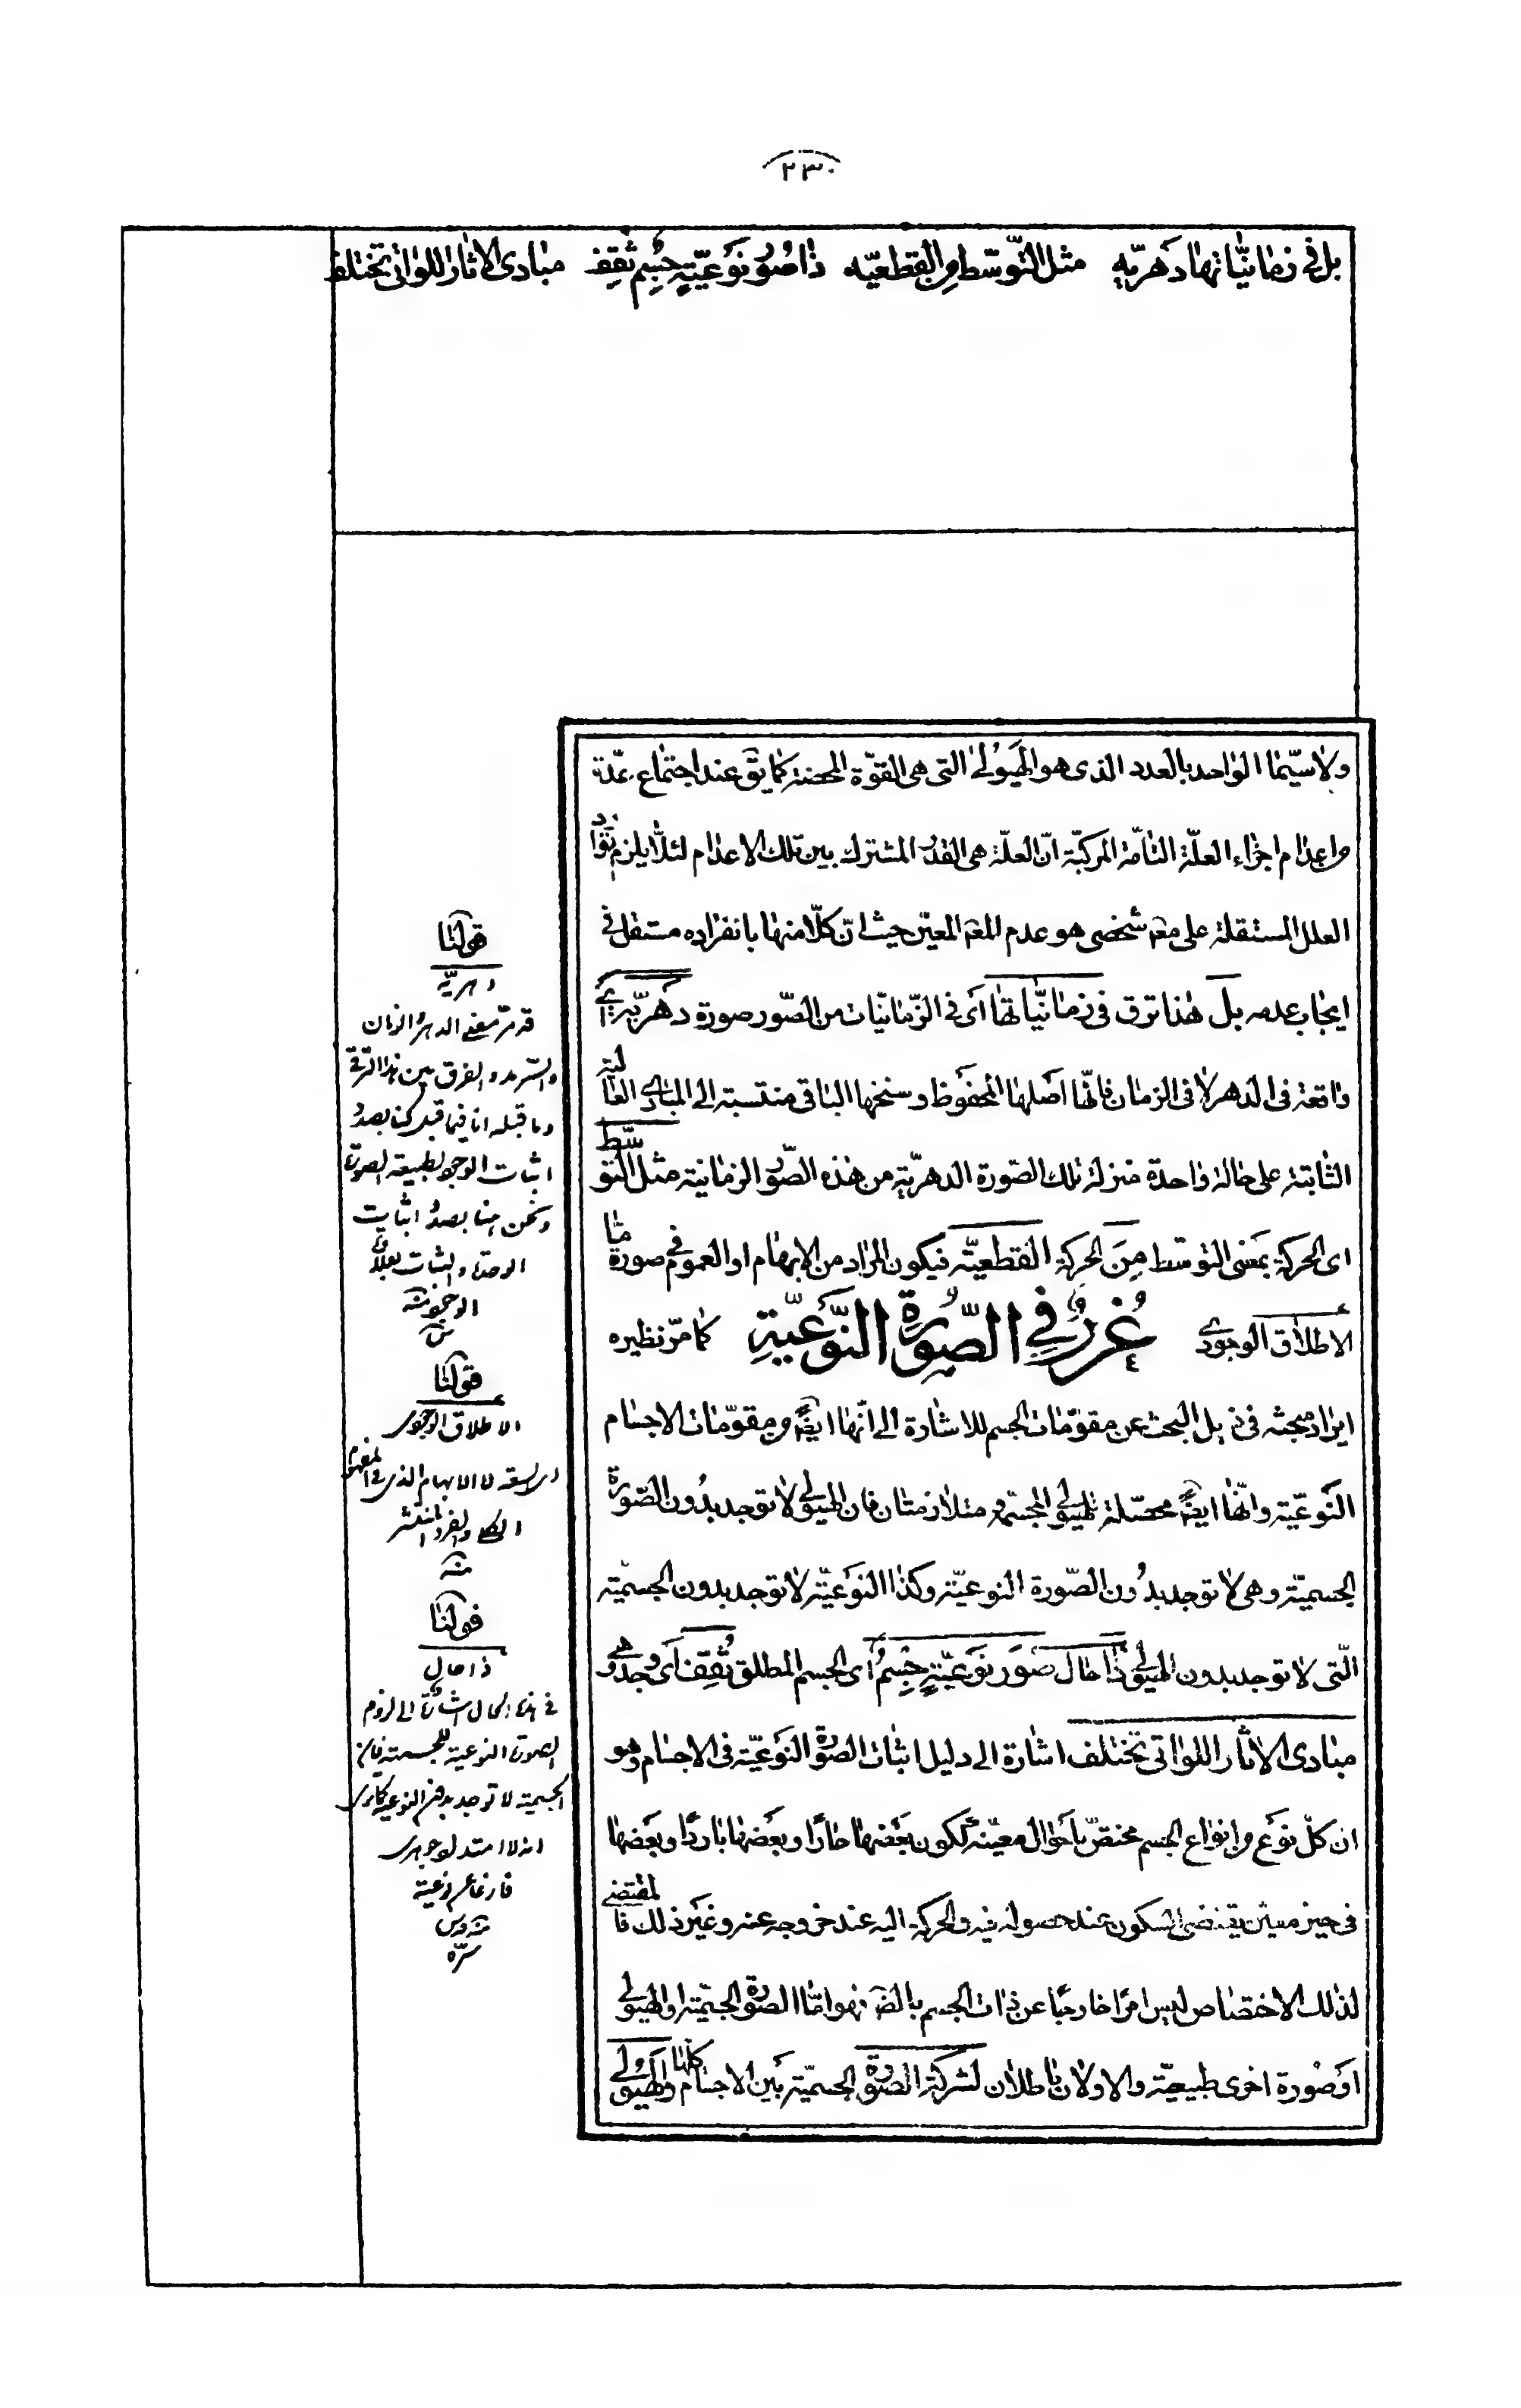 ٢٣٠
بل في زمانيّاتها دهريّه مثل التّوسّط من القطعيّه ذا صُوَر نَوعيّةٍ جِسْم ثُقِف مبادى الاثار اللواتى تختلف
ولا سيّما الواحد بالعدد الذى هو الهَيولى التى هى القوّة المحضة كما يق عند اجتماع عدّة
من اعدام اجزاء العلّة التامّة المركبّة انّ العلّة هى القدر المشترك بين تلك الاعدام لئلّا يلزم توارد
العلل المستقلة على معه شخصى هو عدم المعه المعيّن حيث انّ كلّا منها بانفراده مستقل في
ايجاب عدمه بل هذا ترق في زمانيّاتها اى فى الزّمانيّات من الصّور صورة دهريّة اى
واقعة فى الدهر لا فى الزمان فانّها اصلها المحفوظ وسنخها الباقى منتسبة الى المبادى العالية
الثابتة على حالة واحدة منزلة تلك الصّورة الدهريّة من هذه الصّور الزمانية مثل التوسّط
اى الحركة بمعنى التوسّط مِنَ الحركة القطعيّه فيكون المراد من الابهام او العموم فى صورة ما
الاطلاق الوجودى غُرَرٌ فِي الصُّورَةِ النَّوعيّةِ كما مرّ نظيره
ايراد مبحثه فى ذيل البحث عن مقوّمات الجسم للاشارة الى انّها ايضً من مقوّمات الاجسام
النَوعيّة وانّها ايضً محصّلة للهيولى المجسّمة و متلازمتان فان الهيولى لا توجد بدُون الصّورة
الجسميّة وهى لا توجد بدُون الصّورة النوعيّة وكذا النَوعيّة لا توجد بدون الجسميّة
الّتى لا توجد بدون الهيولى ذا حال صُوَر نوعيّةٍ جِسْمٌ اى الجسم المطلق ثُقِف اى وجد وهى
مبادى الاثار اللواتى تختلف اشارة الى دليل اثبات الصّورة النَوعيّة فى الاجسام وهو
ان كلّ نوَع من انواع الجسم مختصّ باحوال معيّنة لكون بعضها حارًّا وبعضها باردًا وبعضها
فى حيز معيّن يقتضى السكون عند حصوله فيه والحركة اليه عند خروجه عنه وغير ذلك فالمقتضى
لذلك الاختصاص ليس امرًا خارجيًّا عن ذات الجسم بالضّ فهو امّا الصّورة الجسميّة او الهيولى
او صُورة اخرى طبيعيّة والاولان باطلان لشركة الصّورة الجسميّة بين الاجسام كلها والهيولى الاولى
قولنا
دهريّة
قد مرّ معنى الدهر والزمان
والسّرمد والفرق بين هذا الترقى
وما قبله انا فيما قبل كنا بصدد
اثبات الوجود لطبيعة الصورة
ونحن هنا بصدد اثبات
الوحدة والثبات بعلاوة
الوجود منه
س
قولنا
الاطلاق الوجودى
اى السعة لا الابهام الذى فى المفهوم
الكلى والفرد المنتشر
منه
قولنا
ذا حال
فى هذا الحال اشارة الى لزوم
الصورة النوعية للجسمية فان
الجسمية لا توجد بدون النوعية كما
فارغا عن نوعية
منه قدس
سرّه